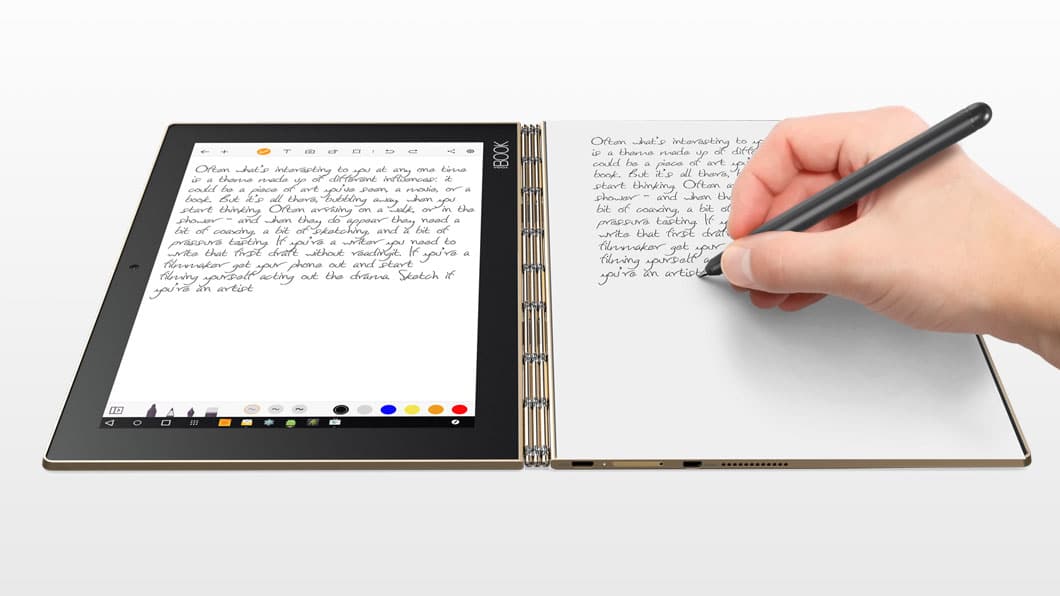 Often what's interesting to you at any one time
is a theme made up of different influences: it
could be a piece of art you've seen, a movie, or a
book. But it's all there, bubbling away when you
start thinking. Often arriving on a walk, or in the
shower - and when they do appear they need a
bit of coaxing, a bit of sketching, and a bit of
pressure testing. If you're a writer you need to
write that first draft without readingit. If you're a
filmmaker get your phone out and start
filming yourself acting out the drama. Sketch if
you're an artist
BOOK
Often what's interesting to
is a theme made up of
could be a piece of art
book. But it's all there,
start thinking. Often
shower - and when th
bit of coaxing, a bit of
pressure testing. If
write that first draf
filmmaker get your
filming yourself a
you're an artist